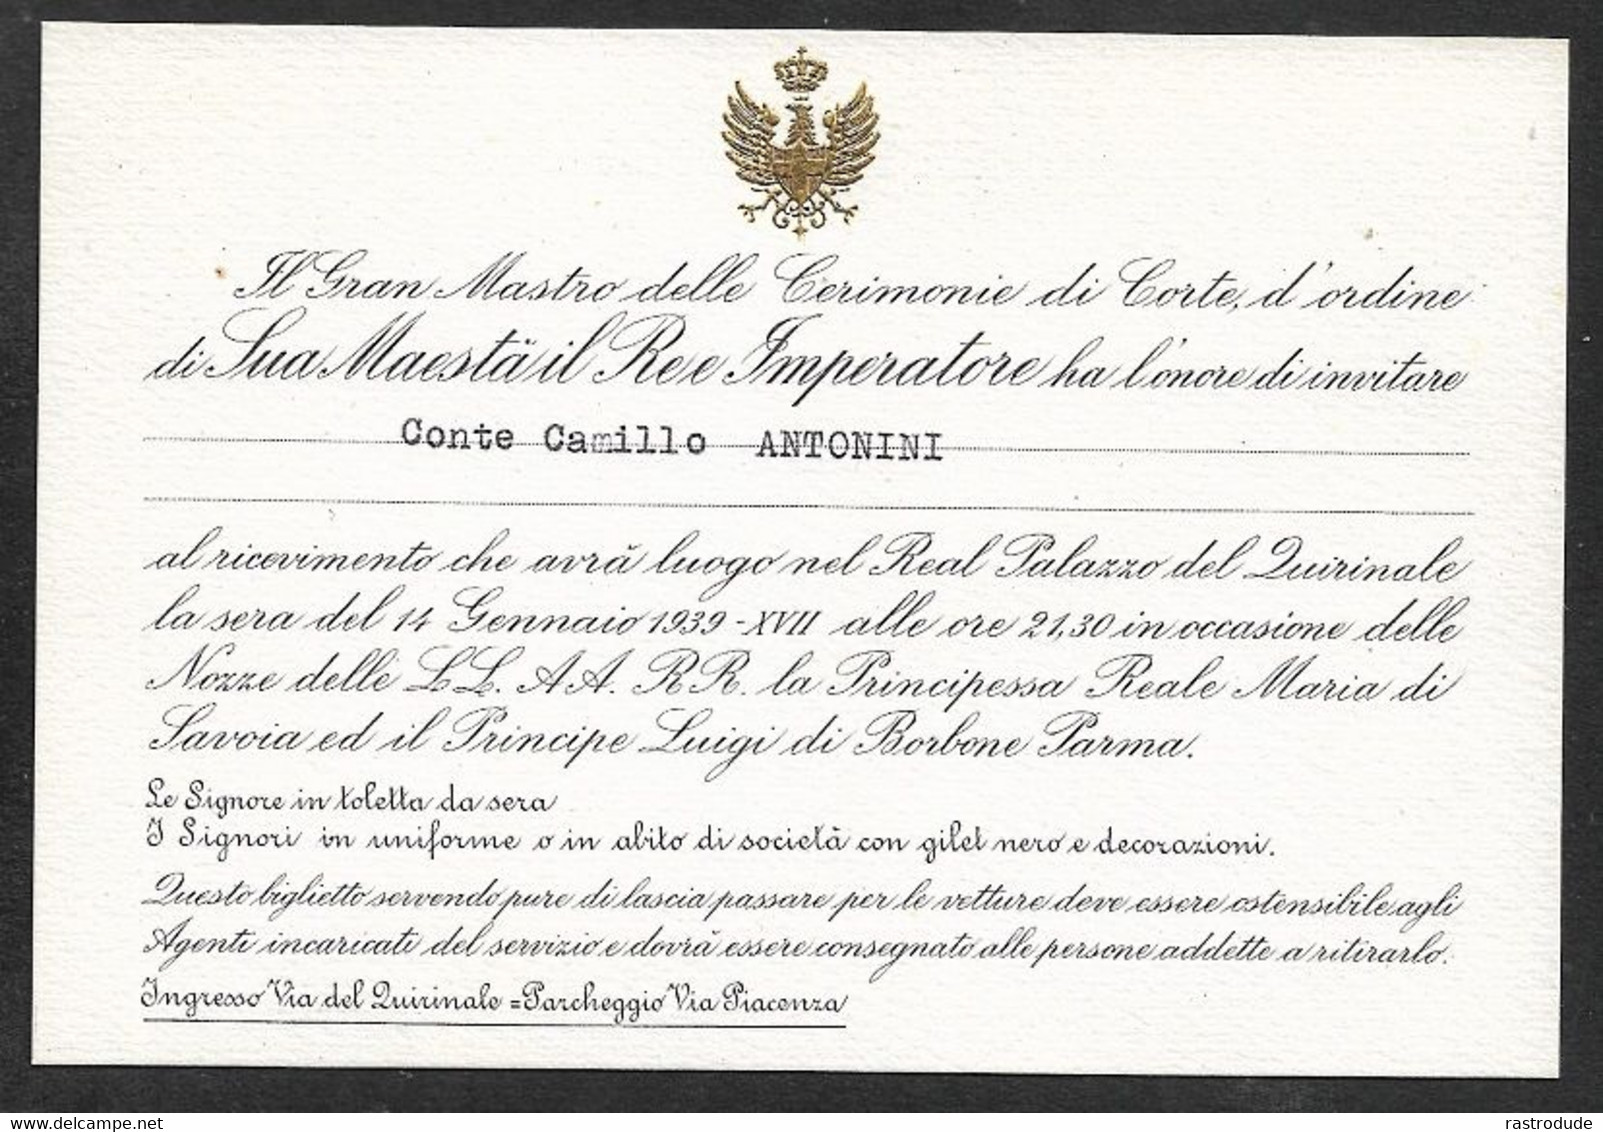 Il Gran Mastro delle Cerimonie di Corte, d'ordine
di Sua Maestà il Re e Imperatore ha l'onore di invitare
Conte Camillo ANTONINI
al ricevimento che avrà luogo nel Real Palazzo del Quirinale
la sera del 14 Gennaio 1939-XVII alle ore 21,30 in occasione delle
Nozze delle LL. AA. RR. la Principessa Reale Maria di
Savoia ed il Principe Luigi di Borbone Parma.
Le Signore in toletta da sera
I Signori in uniforme o in abito di società con gilet nero e decorazioni.
Questo biglietto servendo pure di lascia passare per le vetture deve essere ostensibile agli
Agenti incaricati del servizio e dovrà essere consegnato alle persone addette a ritirarlo.
Ingresso Via del Quirinale = Parcheggio Via Piacenza
delcampe.net
rastrodude